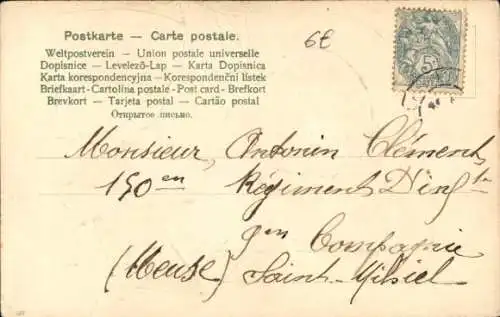 Postkarte — Carte postale.
6E
Weltpostverein — Union postale universelle
Dopisnice — Levelező-Lap — Karta Dopisnica
Karta korespondencyjna — Korespondenční lístek
Briefkaart - Cartolina postale - Post card - Brefkort
Brevkort — Tarjeta postal — Cartão postal
Открытое письмо.
5c
Monsieur, Antonin Clément,
150en Régiment D'Infte
9en Compagnie
(Meuse) Saint-Mihiel